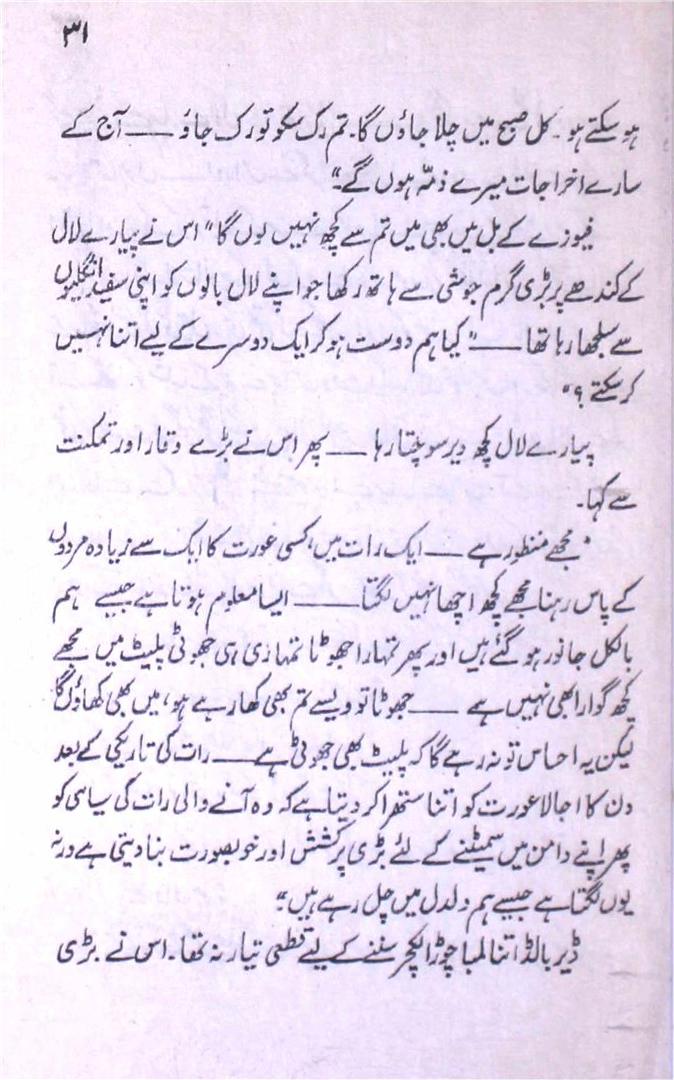 ۳۱
ہو سکتے ہو۔ کل صبح میں چلا جاؤں گا۔ تم رک سکو تو رک جاؤ ـــــ آج کے
سارے اخراجات میرے ذمّہ ہوں گے۔"
فیوزے کے بل میں بھی میں تم سے کچھ نہیں لوں گا" اس نے پیارے لال
کے کندھے پر بڑی گرم جوشی سے ہاتھ رکھا جو اپنے لال بالوں کو اپنی سفید انگلیوں
سے سلجھا رہا تھا ـــــ" کیا ہم دوست ہو کر ایک دوسرے کے لیے اتنا نہیں
کر سکتے ؟"
پیارے لال کچھ دیر سوچتا رہا ـــــ پھر اس نے بڑے وقار اور تمکنت
سے کہا۔
"مجھے منظور ہے ـــــ ایک رات میں، کسی عورت کا ایک سے زیادہ مردوں
کے پاس رہنا مجھے کچھ اچھا نہیں لگتا ـــــ ایسا معلوم ہوتا ہے جیسے ہم
بالکل جانور ہو گئے ہیں اور پھر تمہارا جھوٹا تمہاری ہی جھوٹی پلیٹ میں مجھے
کچھ گوارا بھی نہیں ہے ـــــ جھوٹا تو ویسے تم بھی کھا رہے ہو، میں بھی کھاؤں گا
لیکن یہ احساس تو نہ رہے گا کہ پلیٹ بھی جھوٹی ہے ـــــ رات کی تاریکی کے بعد
دن کا اجالا عورت کو اتنا ستھرا کر دیتا ہے کہ وہ آنے والی رات کی سیاہی کو
پھر اپنے دامن میں سمیٹنے کے لئے بڑی پرکشش اور خوبصورت بنا دیتی ہے ورنہ
یوں لگتا ہے جیسے ہم دلدل میں چل رہے ہیں۔"
ڈیر بالڈ اتنا لمبا چوڑا لکچر سننے کے لیے قطعی تیار نہ تھا۔ اس نے بڑی